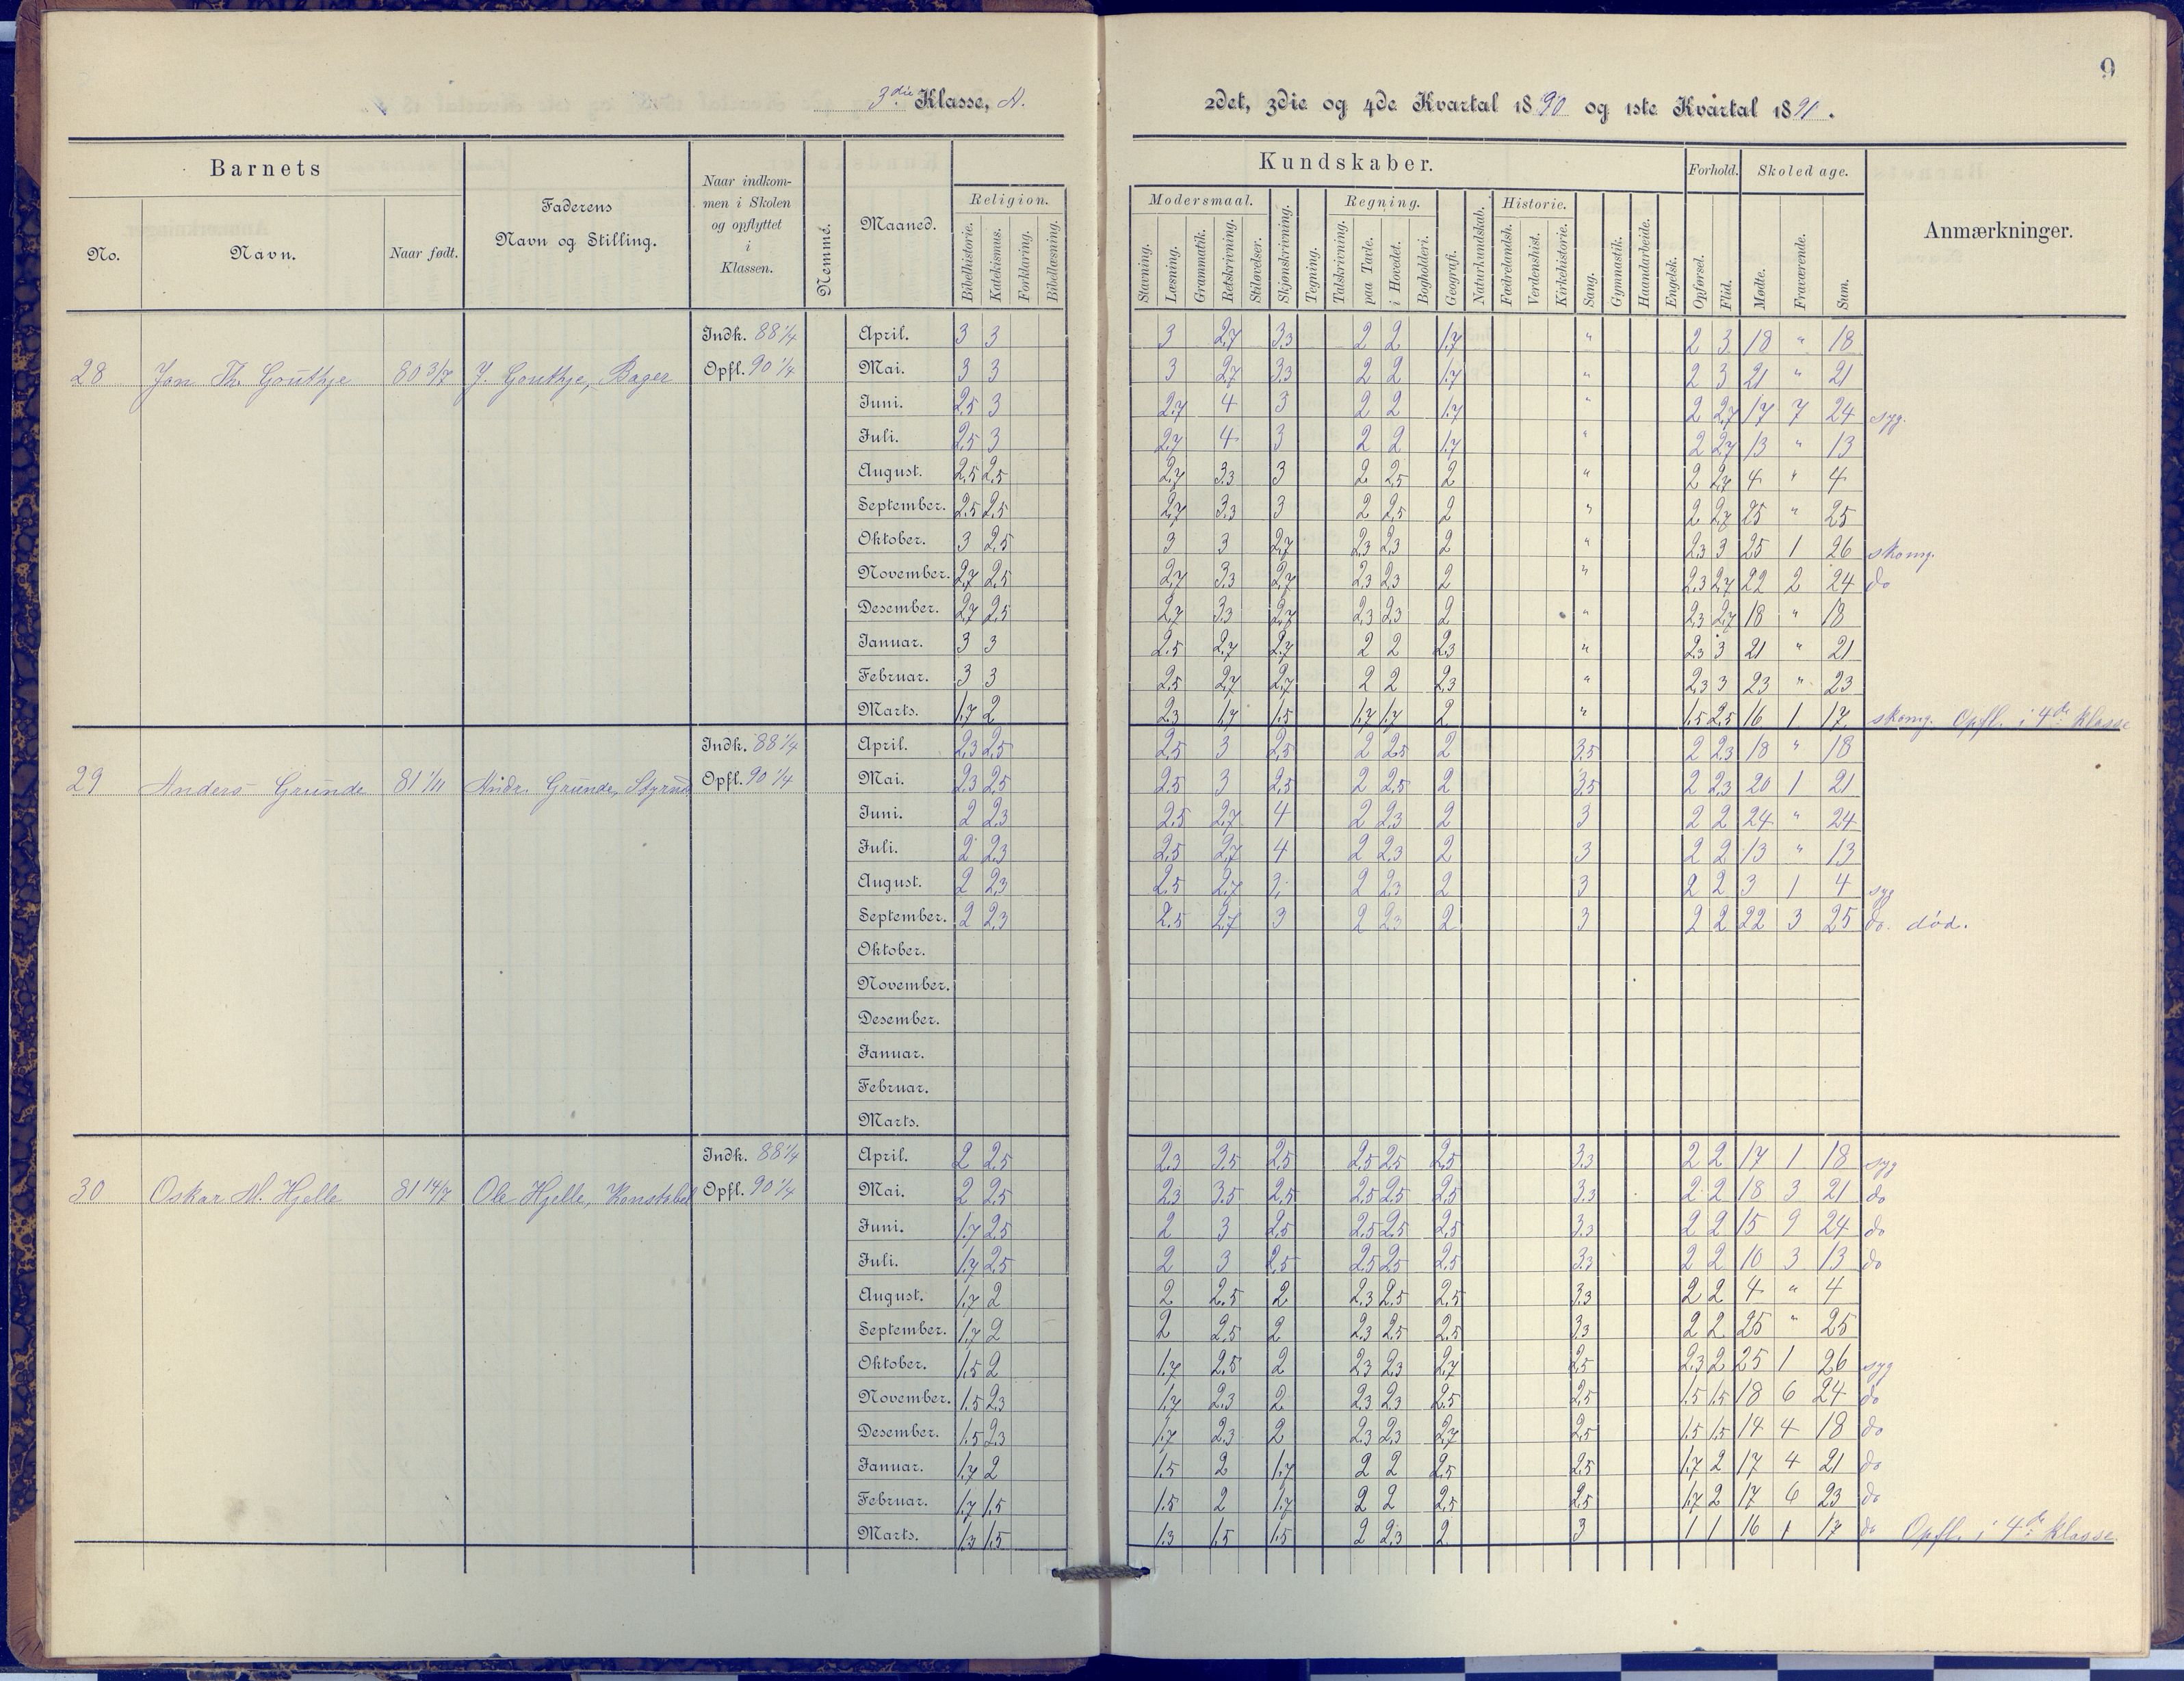 9
3die Klasse, A.
2det, 3die og 4de Kvartal 1890 og 1ste Kvartal 1891.
Barnets
No.
Navn.
Naar født.
Faderens
Navn og Stilling.
Naar indkom-
men i Skolen
og opflyttet
i
Klassen.
Nemme.
Maaned.
Kundskaber.
Religion.
Bibelhistorie.
Katekismus.
Forklaring.
Bibellæsning.
Modersmaal.
Stavning.
Læsning.
Grammatik.
Retskrivning.
Stiløvelser.
Skjønskrivning.
Tegning.
Regning.
Talskrivning.
paa Tavle.
i Hovedet.
Bogholderi.
Geografi.
Naturkundskab.
Historie.
Fædrelandsh.
Verdenshist.
Kirkehistorie.
Sang.
Gymnastik.
Haandarbeide.
Engelsk.
Forhold.
Opførsel.
Flid.
Skoledage.
Mødte.
Fraværende.
Sum.
Anmærkninger.
Indk. 88 1/4 April. 3 3 3 2,7 3,3 2 2 1,7 " 2 3 18 " 18
28 Jon Th. Gouthje 80 3/7 J. Gouthje, Bager Opfl. 90 1/4 Mai. 3 3 3 2,7 3,3 2 2 1,7 " 2 3 21 " 21
Juni. 2,5 3 2,7 4 3 2 2 1,7 " 2 2,7 17 7 24 syg.
Juli. 2,5 3 2,7 4 3 2 2 1,7 " 2 2,7 13 " 13
August. 2,5 2,5 2,7 3,3 3 2 2,5 2 " 2 2,7 4 " 4
September. 2,5 2,5 2,7 3,3 3 2 2,5 2 " 2 2,7 25 " 25
Oktober. 3 2,5 3 3 2,7 2,3 2,3 2 " 2,3 3 25 1 26 skomg.
November. 2,7 2,5 2,7 3,3 2,7 2,3 2,3 2 " 2,3 2,7 22 2 24 do
Desember. 2,7 2,5 2,7 3,3 2,7 2,3 2,3 2 " 2,3 2,7 18 " 18
Januar. 3 3 2,5 2,7 2,7 2 2 2,3 " 2,3 3 21 " 21
Februar. 3 3 2,5 2,7 2,7 2 2 2,3 " 2,3 3 23 " 23
Marts. 1,7 2 2,3 1,7 1,5 1,7 1,7 2 " 1,5 2,5 16 1 17 skomg. Opfl. i 4de klasse
Indk. 88 1/4 April. 2,3 2,5 2,5 3 2,5 2 2,5 2 3,5 2 2,3 18 " 18
29 Anders Graunde 81 1/11 Andr. Graunde, Styrmd Opfl. 90 1/4 Mai. 2,3 2,5 2,5 3 2,5 2 2,5 2 3,5 2 2,3 20 1 21
Juni. 2 2,3 2,5 2,7 4 2 2,3 2 3 2 2 24 " 24
Juli. 2 2,3 2,5 2,7 4 2 2,3 2 3 2 2 13 " 13
August. 2 2,3 2,5 2,7 2 2,3 2 3 2 2 3 1 4 syg
September. 2 2,3 2,5 2,7 3 2 2,3 2 3 2 2 22 3 25 do. død.
Oktober.
November.
Desember.
Januar.
Februar.
Marts.
Indk. 88 1/4 April. 2 2,5 2,3 3,5 2,5 2,5 2,5 2,5 3,3 2 2 17 1 18 syg
30 Oskar M. Hjelle 81 14/7 Ole Hjelle, Konstabel Opfl. 90 1/4 Mai. 2 2,5 2,3 3,5 2,5 2,5 2,5 2,5 3,3 2 2 18 3 21 do
Juni. 1,7 2,5 2 3 2,5 2,5 2,5 2,5 3,3 2 2 15 9 24 do
Juli. 1,7 2,5 2 3 2,5 2,5 2,5 2,5 3,3 2 2 10 3 13 do
August. 1,7 2 2 2,5 2 2,3 2,5 2,5 3,3 2 2 4 " 4
September. 1,7 2 2 2,5 2 2,3 2,5 2,5 3,3 2 2 25 " 25
Oktober. 1,5 2 1,7 2,5 2 2,3 2,3 2,7 2,5 2,3 2 25 1 26 syg
November. 1,5 2,3 1,7 2,3 2 2,3 2,3 2,5 2,5 1,5 1,5 18 6 24 do
Desember. 1,5 2,3 1,7 2,3 2 2,3 2,3 2,7 2,5 1,5 1,5 14 4 18 do
Januar. 1,7 2 1,5 2 1,7 2 2 2,5 2,5 1,7 2 17 4 21 do
Februar. 1,7 1,5 1,5 2 1,7 2 2 2,5 2,5 1,7 2 17 6 23 do
Marts. 1,3 1,5 1,3 1,5 1,5 2 2,3 2 3 1 1 16 1 17 do Opfl. i 4de klasse